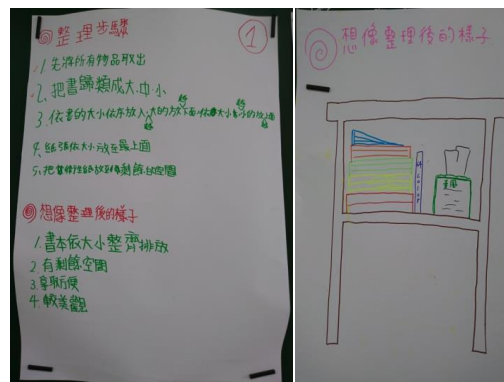 整理步驟
1
1. 先將所有物品取出
2. 把書歸類成大.中.小
3. 依書的大小依序放入,越大的放下面,依序越小的放上面
4. 紙張依大小放至最上面
5. 把放到剩餘的空間
想像整理後的樣子
1. 書本依大小整齊排放
2. 有剩餘空間
3. 拿取方便
4. 較美觀
想像整理後的樣子